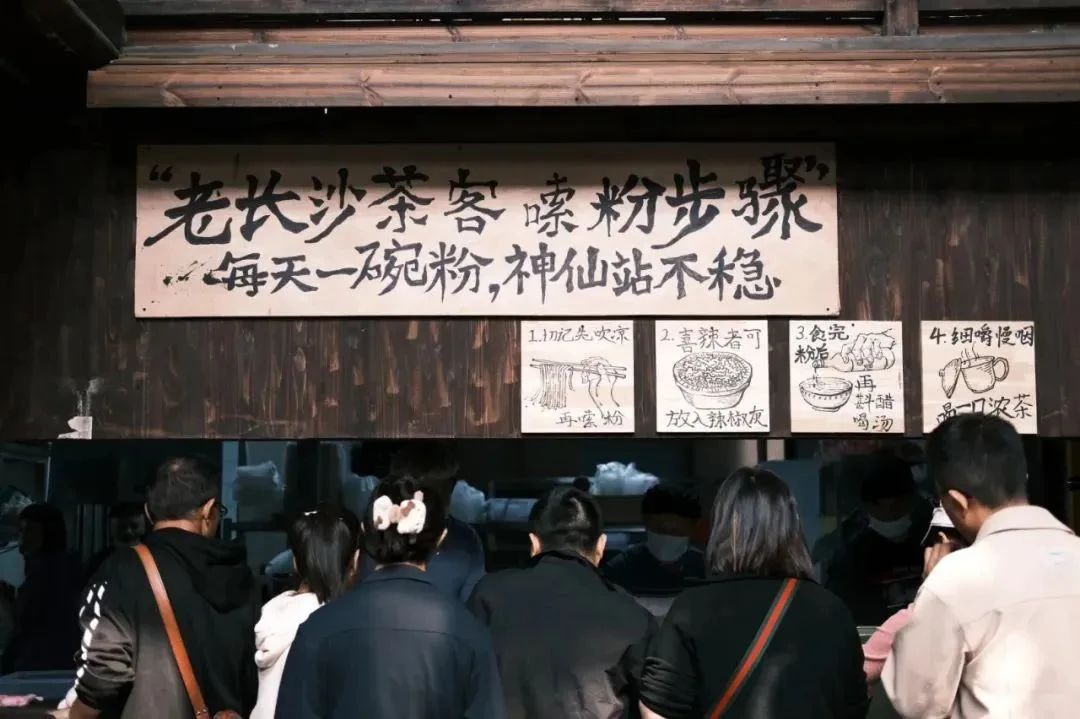 “老长沙茶客嗦粉步骤”
每天一碗粉,神仙站不稳.
1.切记先吹凉
再嗦粉
2.喜辣者可
放入辣椒灰
3.食完
粉后
再
斟醋
喝汤
4.细嚼慢咽
喝一口浓茶